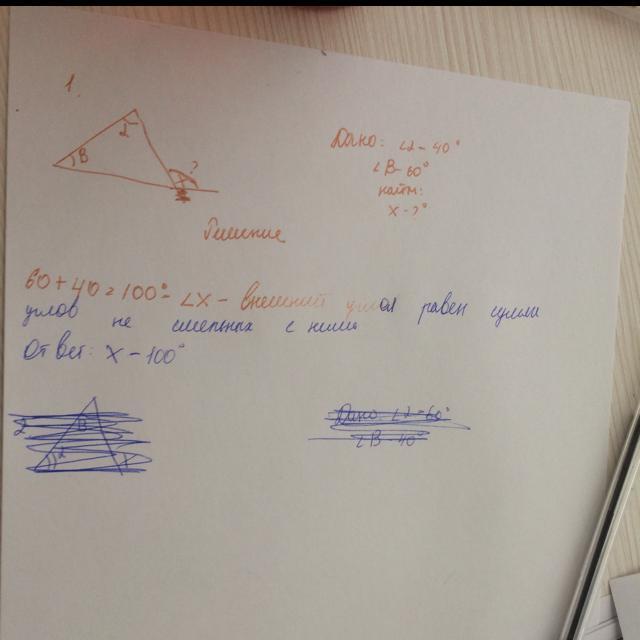 1.
α
β
?
Дано: ∠α - 40°
∠β - 60°
найти:
x - ?°
Решение
60 + 40 = 100° - ∠x - внешний угол равен сумме
углов не смежных с ними
Ответ: x - 100°
Дано: ∠α = 60°
∠β 40°